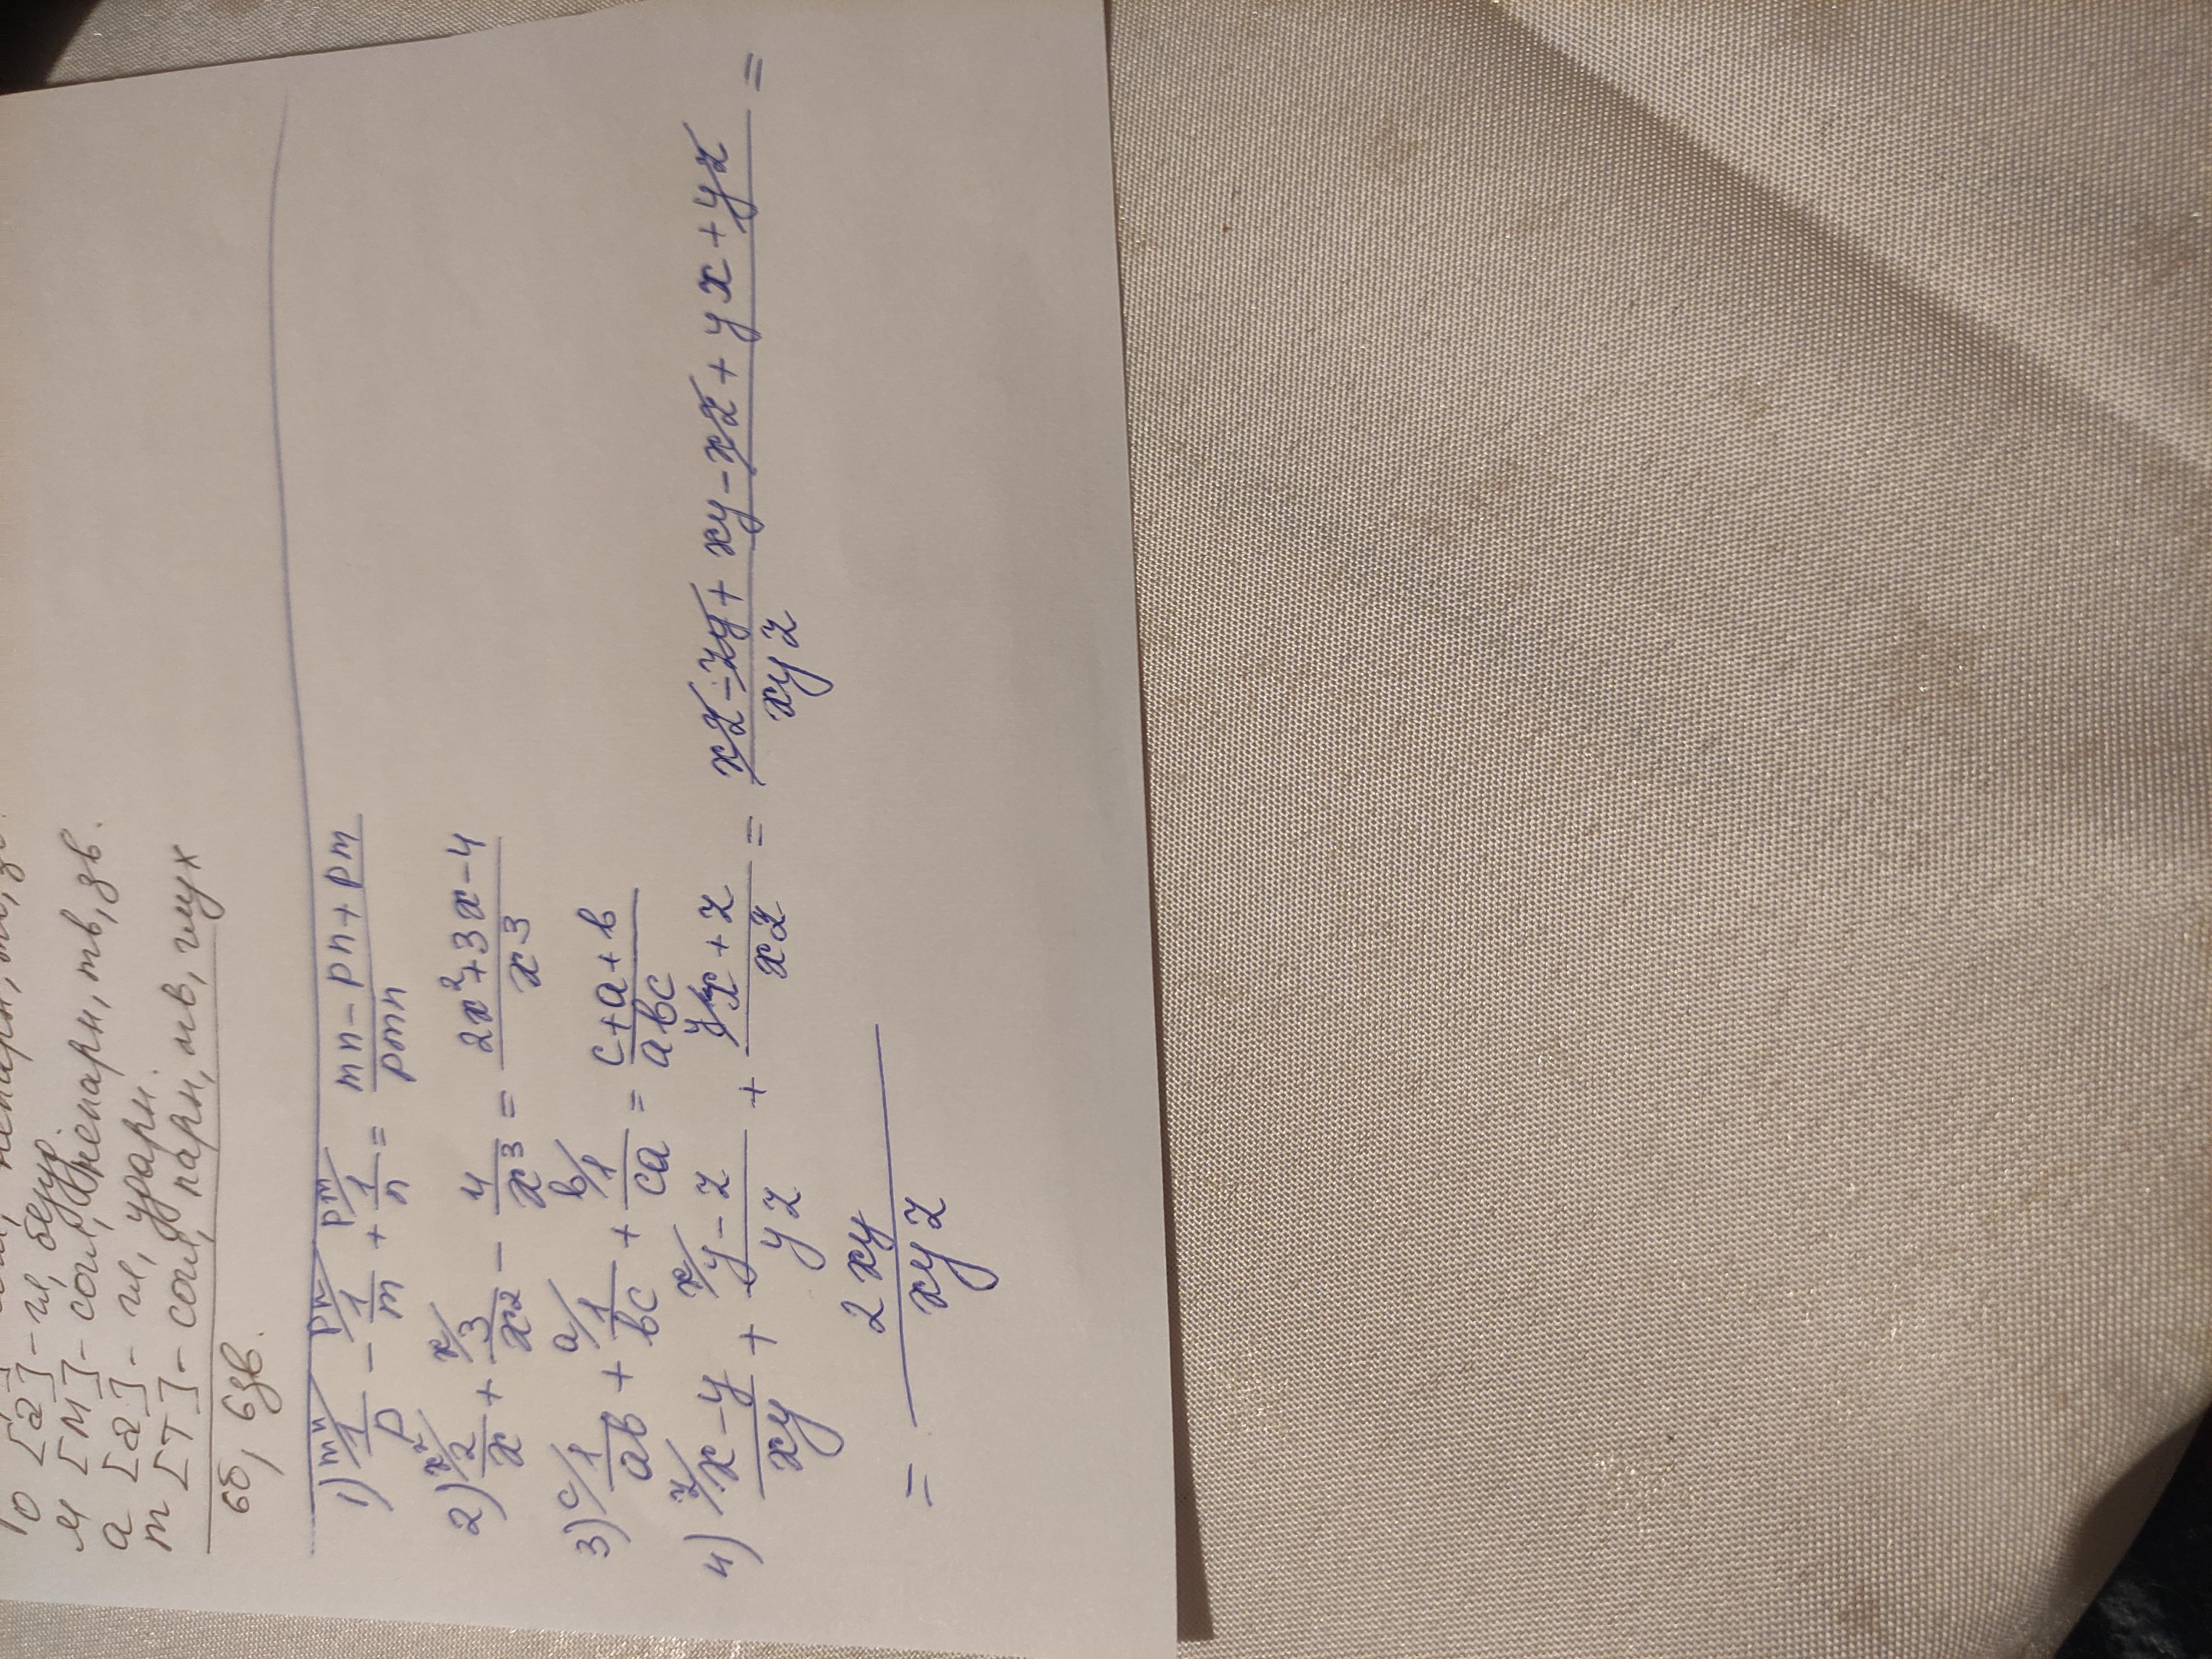 ю [а] - гл, безуд.
м [м] - согл, непарн, тв, зв.
а [а] - гл, ударн.
т [т] - согл, парн, тв, глух
6б, 6зв.
1) mn/ 1/p - pn/ 1/m + pm/ 1/n = (mn - pn + pm)/pmn
2) x²/ 2/x + x/ 3/x² - 4/x³ = (2x² + 3x - 4)/x³
3) c/ 1/ab + a/ 1/bc + b/ 1/ca = (c + a + b)/abc
4) z/ (x - y)/xy + x/ (y - z)/yz + y/ (x + z)/xz = (xz - zy + xy - xz + yx + yz)/xyz =
= 2xy/xyz